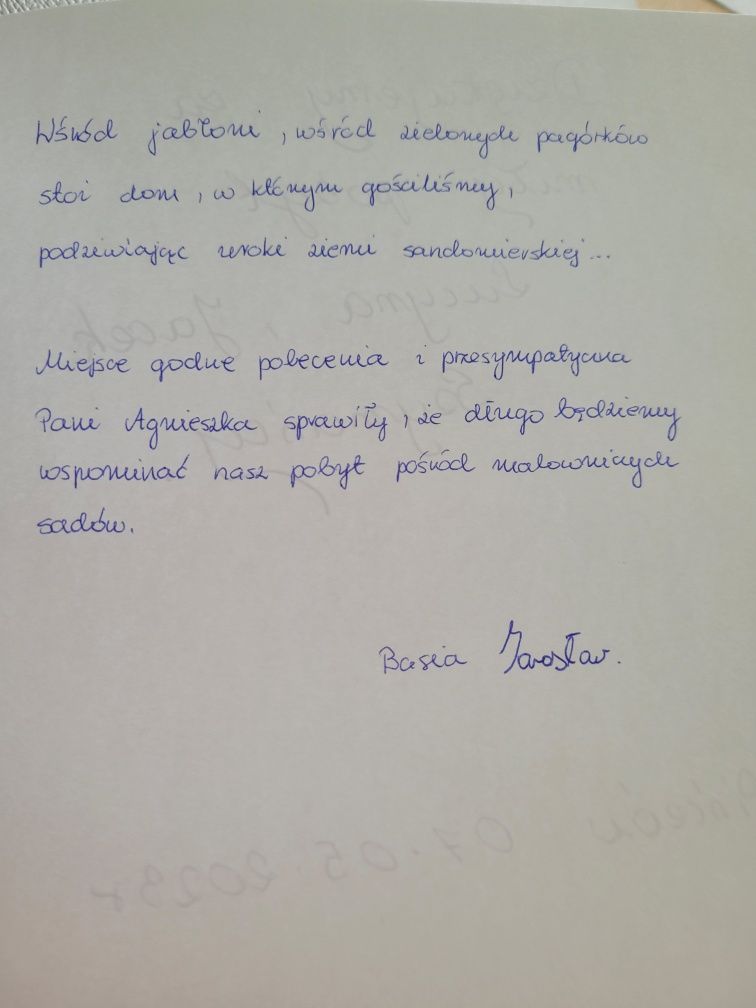 Wśród jabłoni, wśród zielonych pagórków
stoi dom, w którym gościliśmy,
podziwiając uroki ziemi sandomierskiej...
Miejsce godne polecenia i przesympatyczna
Pani Agnieszka sprawiły, że długo będziemy
wspominać nasz pobyt pośród malowniczych
sadów.
Basia Jarosław.
07.05.2023r